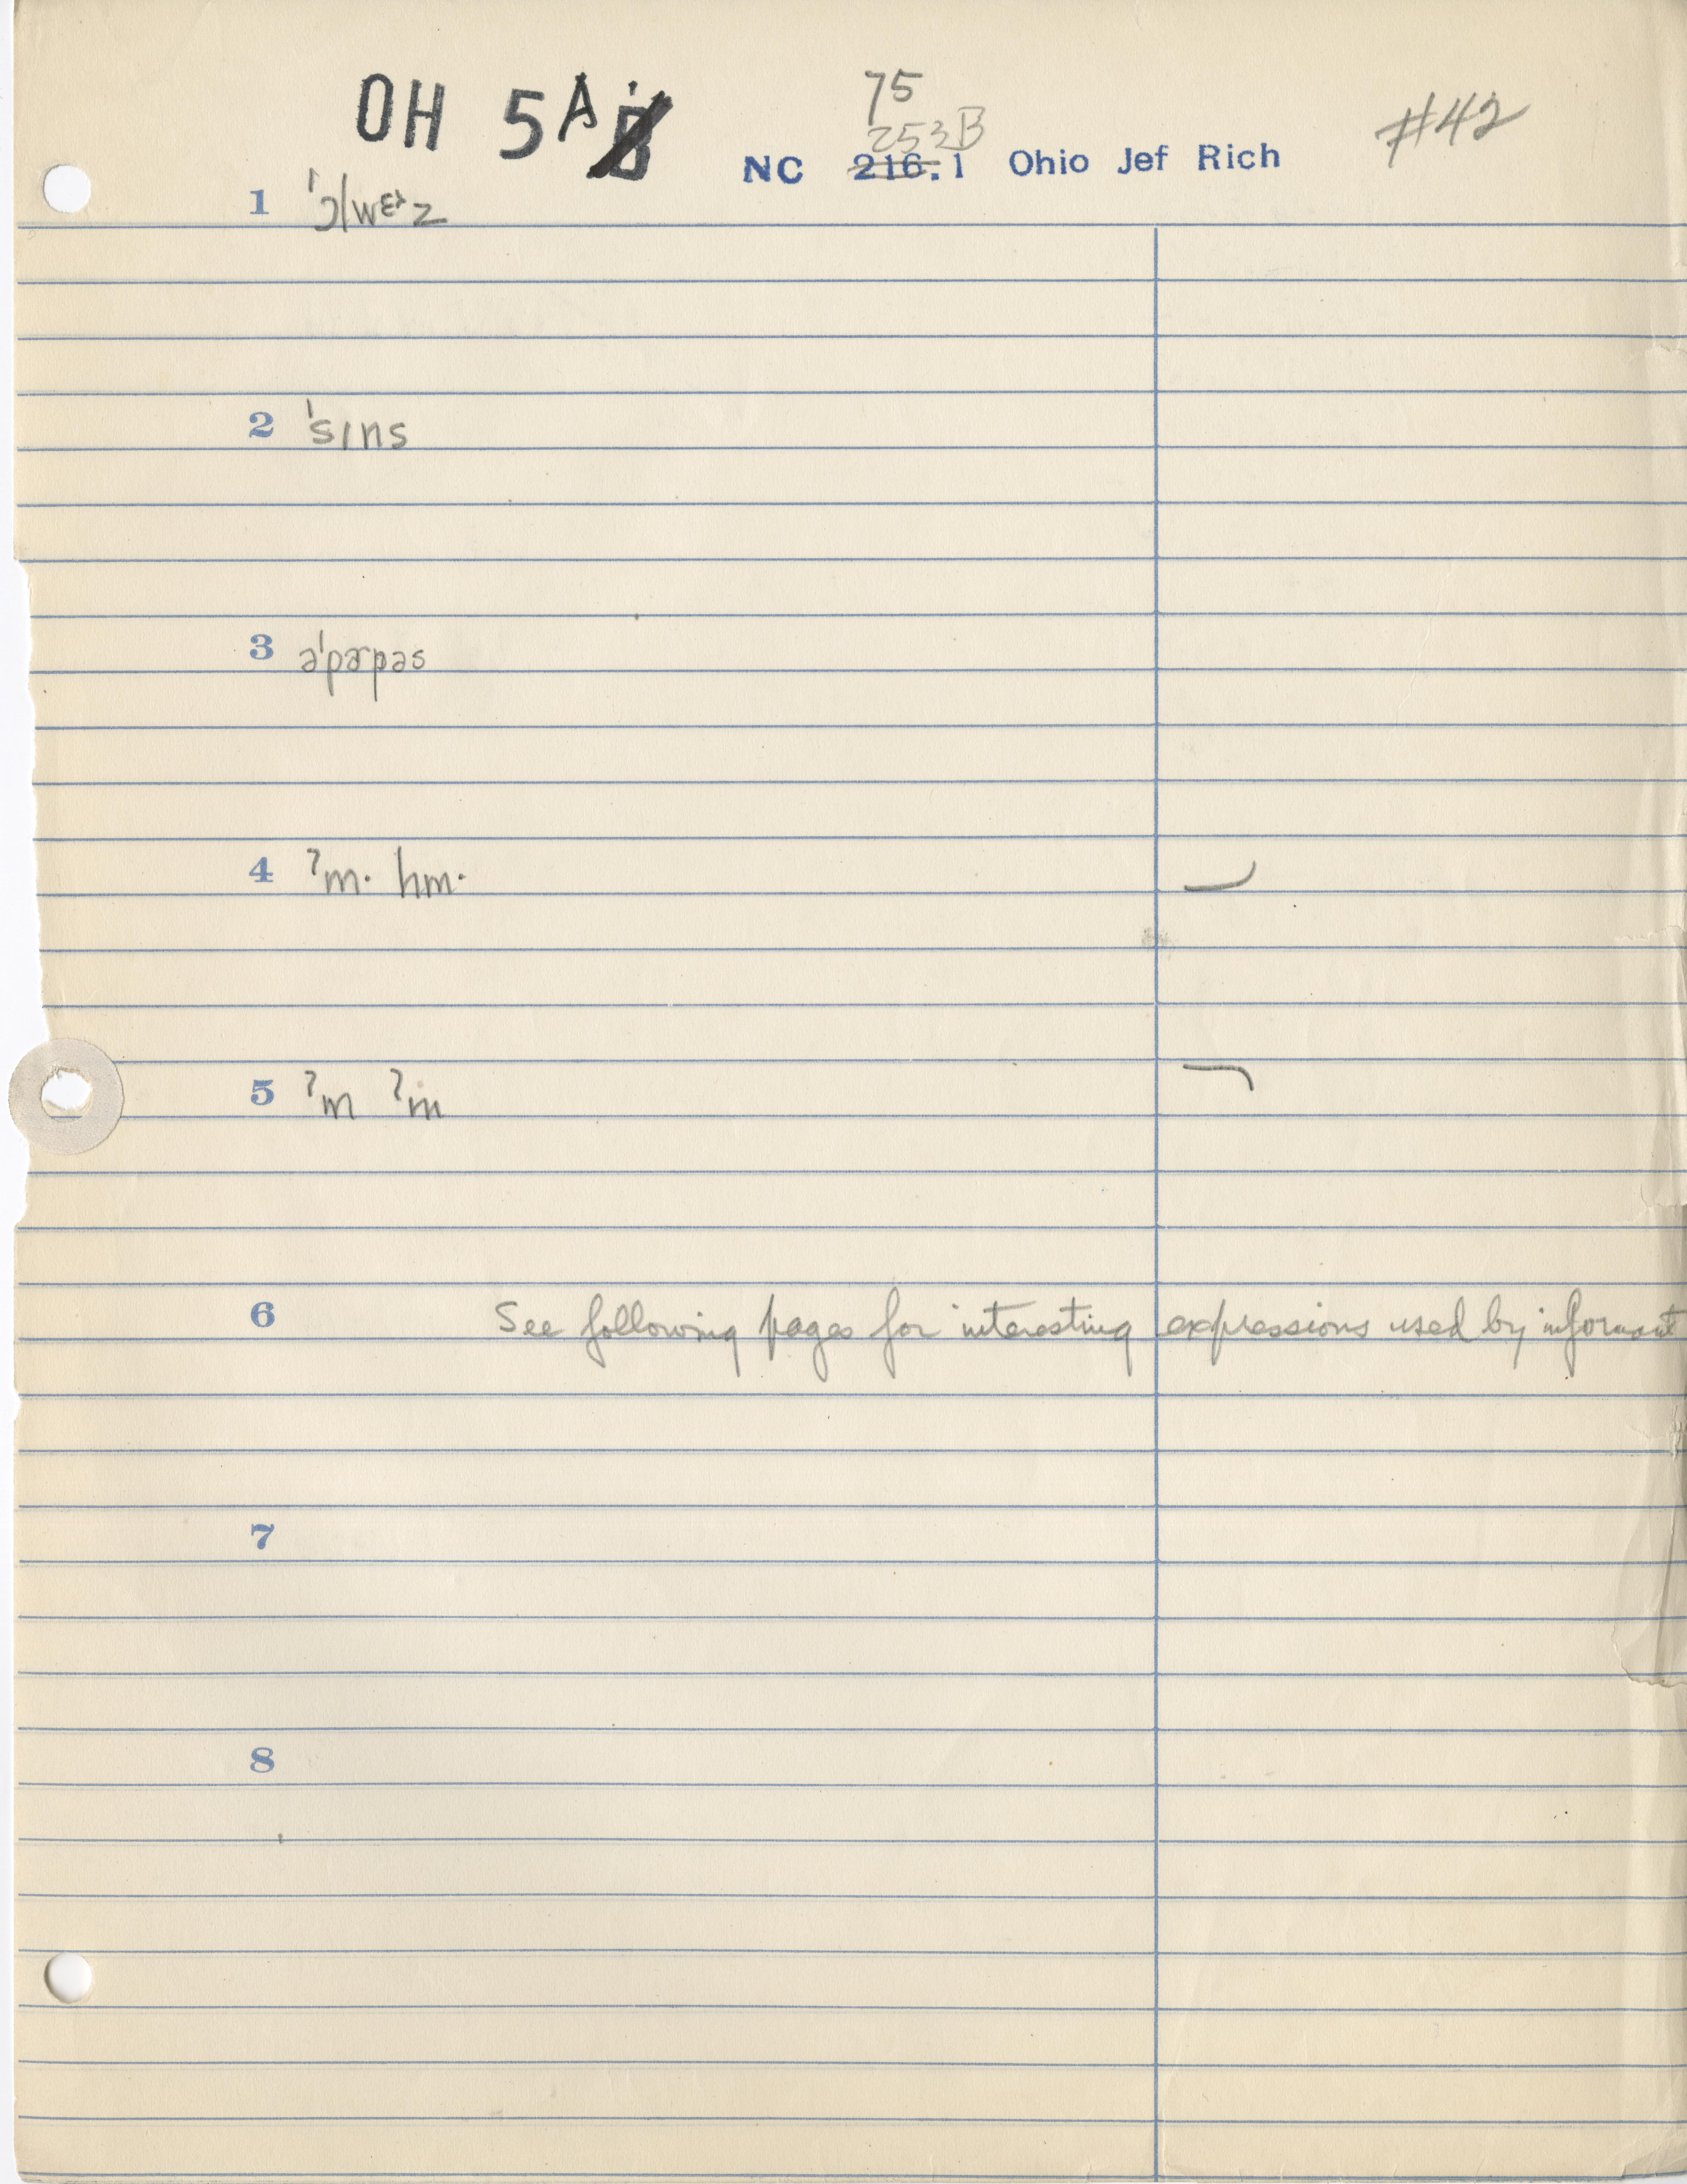 75
OH 5A #42
253B
NC 216.1 Ohio Jef Rich
1 'ɔlwɛɪz
2 'sɪns
3 ə'pɚpəs
4 ʔm· hm·
5 ʔm ʔm
6 See following pages for interesting expressions used by informant
7
8